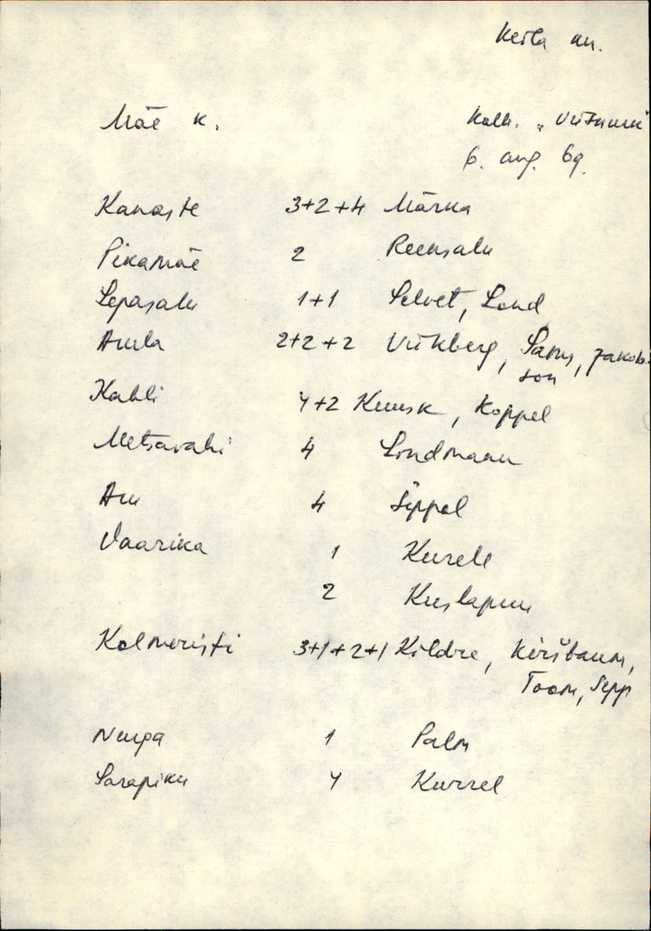 Keila khn.
Mäe k.
Kolh. "
6. aug. 69.
Kanaste 3+2+4 Märka
Pikamäe 2 Reensalu
Lepasalu 1+1 Selvet, Lond
2+2+2 Viikberg, Jakob-
son
Kahli 4+2 Kuusk, Koppel
Metsavahi 4 Londmann
Aru 4 Seppel
Vaarika 1 Kurell
2 Kuslapuu
Kolmeristi 3+1+2+1 Kildre, Kiršbaum,
Toom, Sepp
Nurga 1 Palm
Sarapiku 4 Kurrel